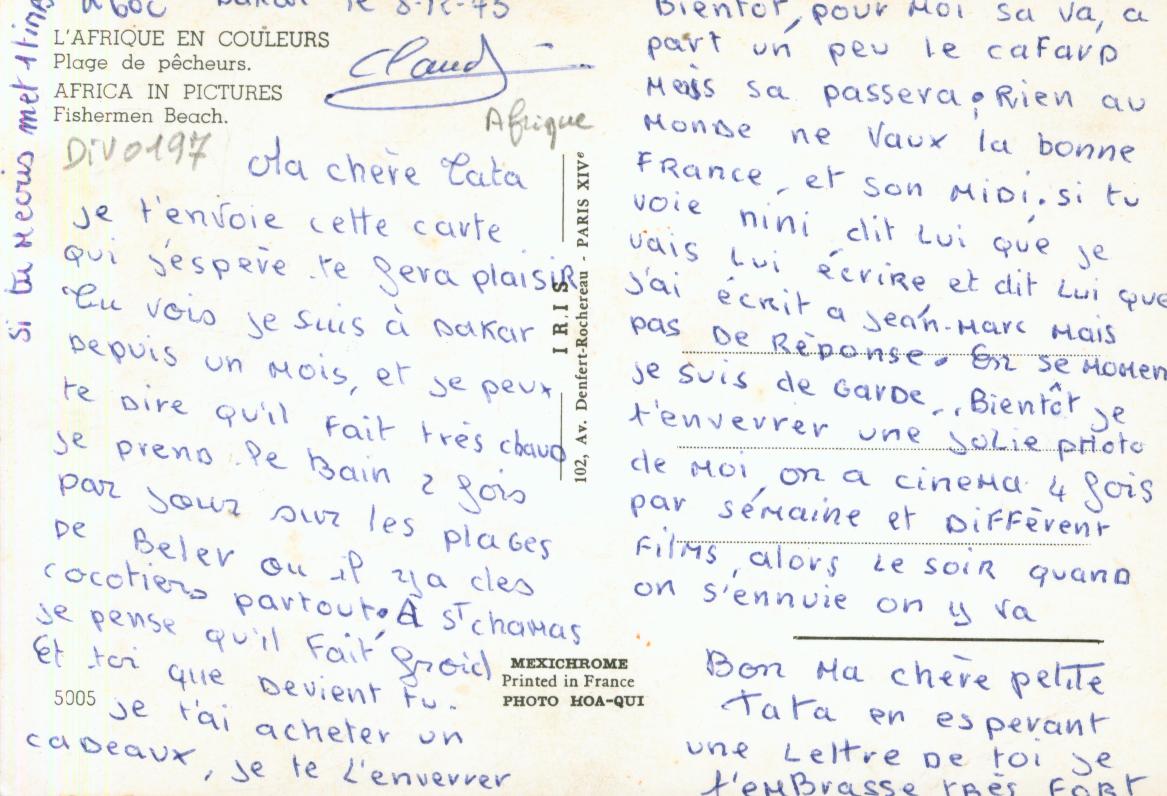 Dakar le 8-12-75
L'AFRIQUE EN COULEURS
Plage de pêcheurs.
AFRICA IN PICTURES
Fishermen Beach.
Claud
Afrique
DIV0197
Ma chère Tata
je t'envoie cette carte
qui j'éspère te fera plaisiR
Tu vois je suis à DaKar
Depuis un Mois, et je peux
te Dire qu'il Fait très chaud
je prend le Bain 2 fois
par jour sur les plages
De Beler ou il ya des
cocotiers partout. À St chamas
je pense qu'il Fait froid
Et toi que Devient tu.
je t'ai acheter un
caDeaux, je te L'enverrer
Bientot, pour Moi sa va, a
part un peu le caFard
Mais sa passera. Rien au
MonDe ne Vaux la bonne
France, et son MiDi. si tu
voie nini dit Lui que je
vais Lui écrire et dit Lui que
j'ai écrit a jean-Marc Mais
pas De Réponse. En se MoMen
je suis de Garde.. Bientôt je
t'enverrer une joLie photo
de Moi, on a cinéMa 4 fois
par séMaine et DiFFèrent
FilMs, alors Le soir quand
on s'ennuie on y va
Bon Ma chère petite
Tata en esperant
une Lettre De toi je
t'emBrasse très Fort
si tu Mecris met 1 tim
IRIS
102, Av. Denfert-Rochereau - PARIS XIVe
MEXICHROME
Printed in France
PHOTO HOA-QUI
5005